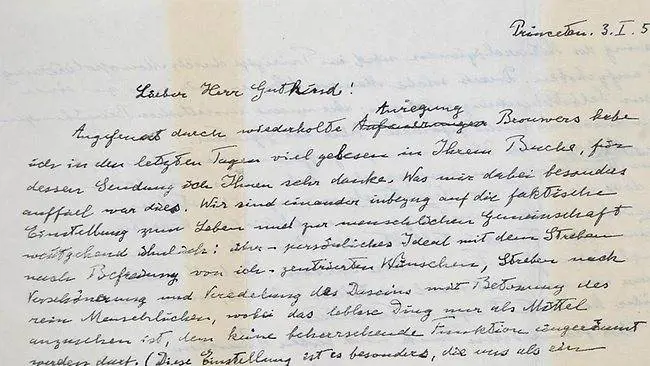 Princeton. 3. I. 5
Lieber Herr Gutkind!
Anregung
Angefeuert durch wiederholte Anfeuerungen Brouwers habe
ich in den letzten Tagen viel gelesen in Ihrem Buche, für
dessen Sendung ich Ihnen sehr danke. Was mir dabei besonders
auffiel war dies. Wir sind einander inbezug auf die faktische
Einstellung zum Leben und zur menschlichen Gemeinschaft
weitgehend ähnlich: über-persönliches Ideal mit dem Streben
nach Befreiung von ich-zentrierten Wünschen, Streben nach
Verschönerung und Veredelung des Daseins mit Betonung des
rein Menschlichen, wobei das leblose Ding nur als Mittel
anzusehen ist, dem keine beherrschende Funktion eingeräumt
werden darf. (Diese Einstellung ist es besonders, die uns als ein